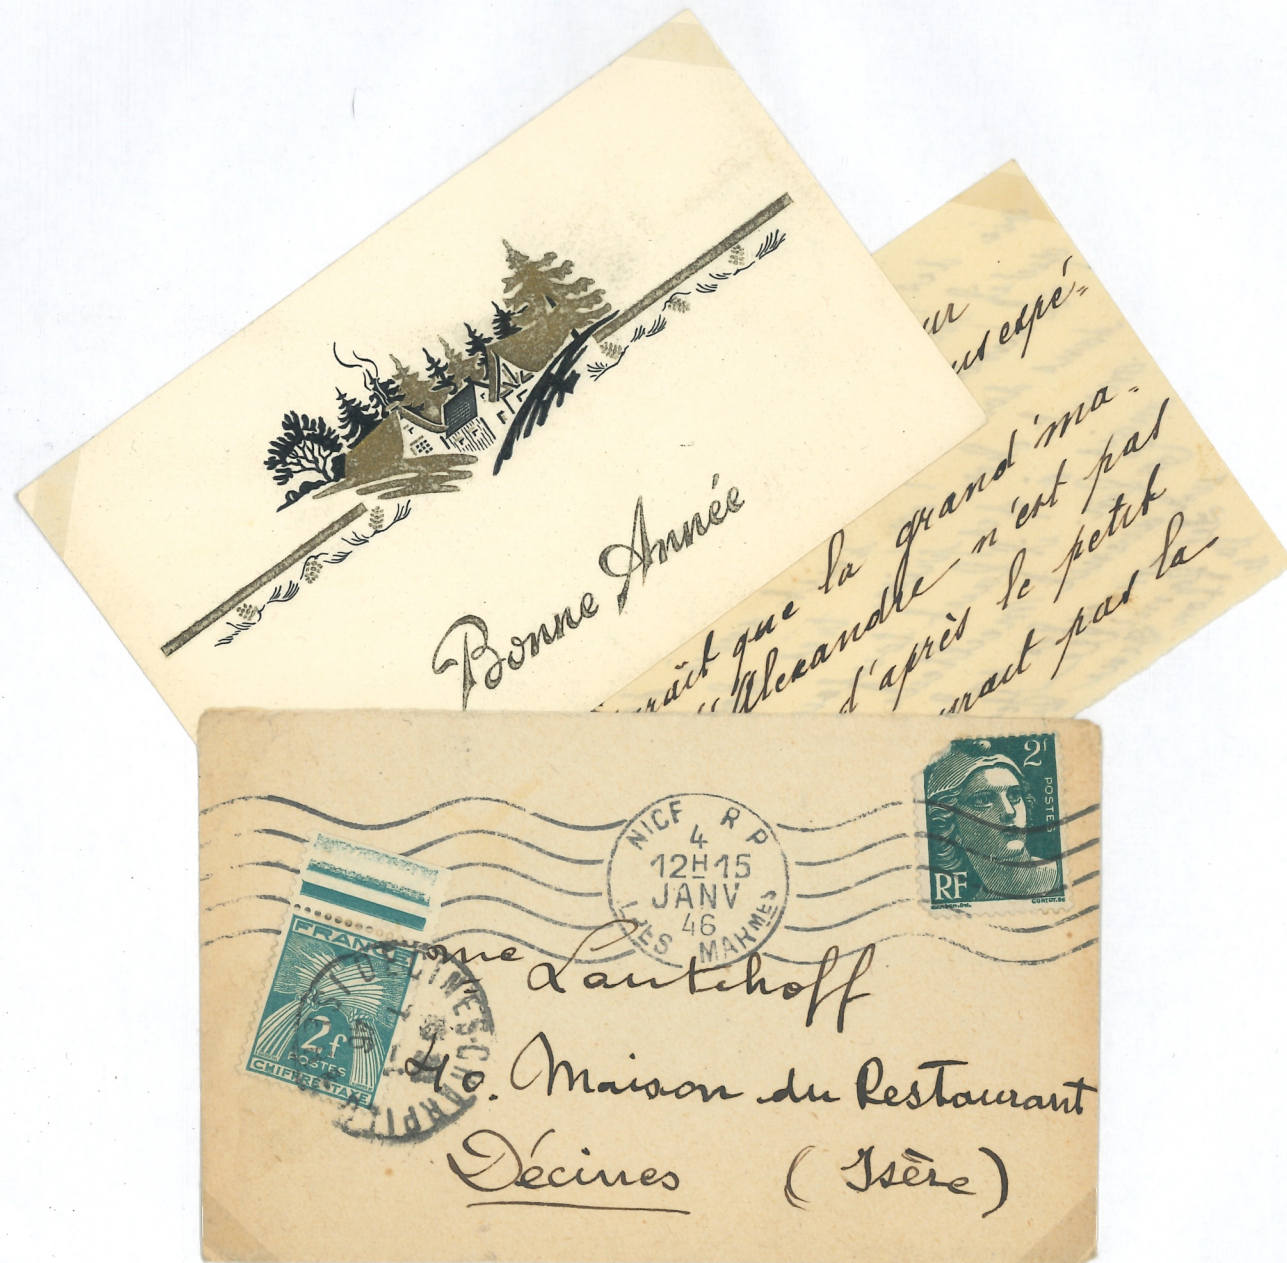 Bonne Année
ur
us espé-
raît que la grand'ma-
d'Alexandre n'est pas
d'après le petit
urait pas la
2f
POSTES
RF
NICE R P
4
12H15
JANV
46
ALPES MARMES
FRANCE
2f
POSTES
CHIFFRE-TAXE
DECINES-CHARPIEU
ISERE
Mme Lautchoff
40. Maison du Restaurant
Décines (Isère)